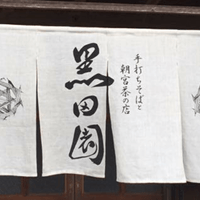 手打ちそばと
朝宮茶の店
黒田園